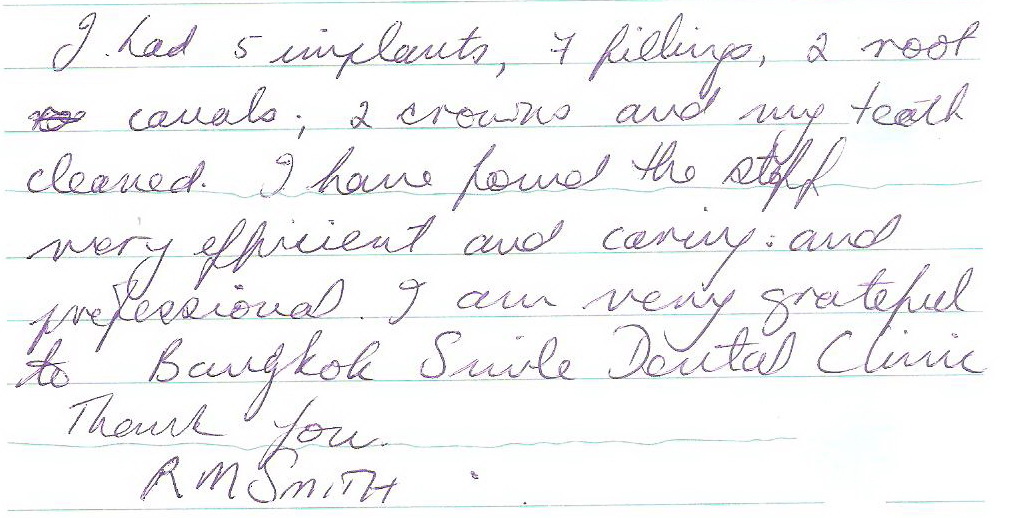 I had 5 implants, 7 fillings, 2 root
canals; 2 crowns and my teeth
cleaned. I have found the staff
very efficient and caring: and
professional. I am very grateful
to Bangkok Smile Dental Clinic
Thank you.
R M SMITH